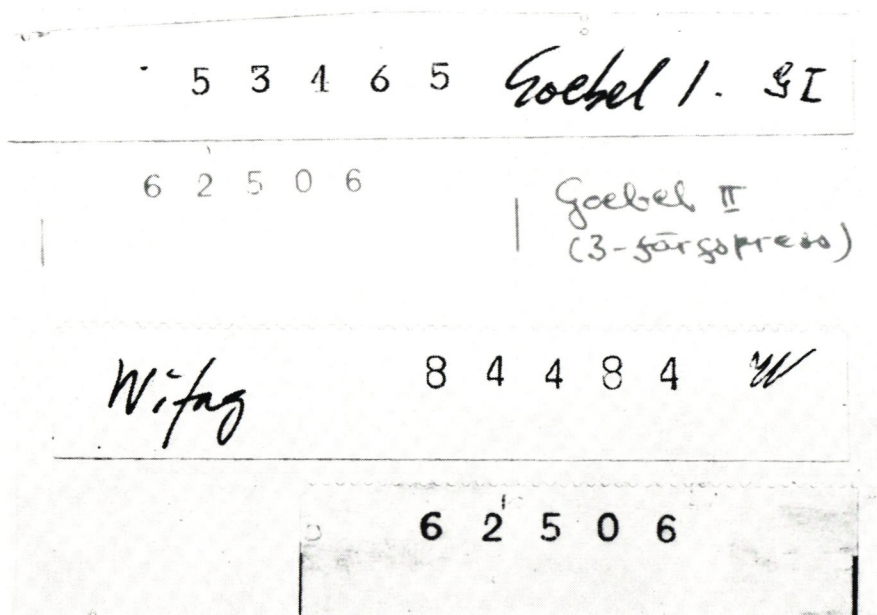 5 3 1 6 5 Goebel 1. GI
6 2 5 0 6 Goebel II
(3-färgspress)
Wifag 8 4 4 8 4 W
6 2 5 0 6